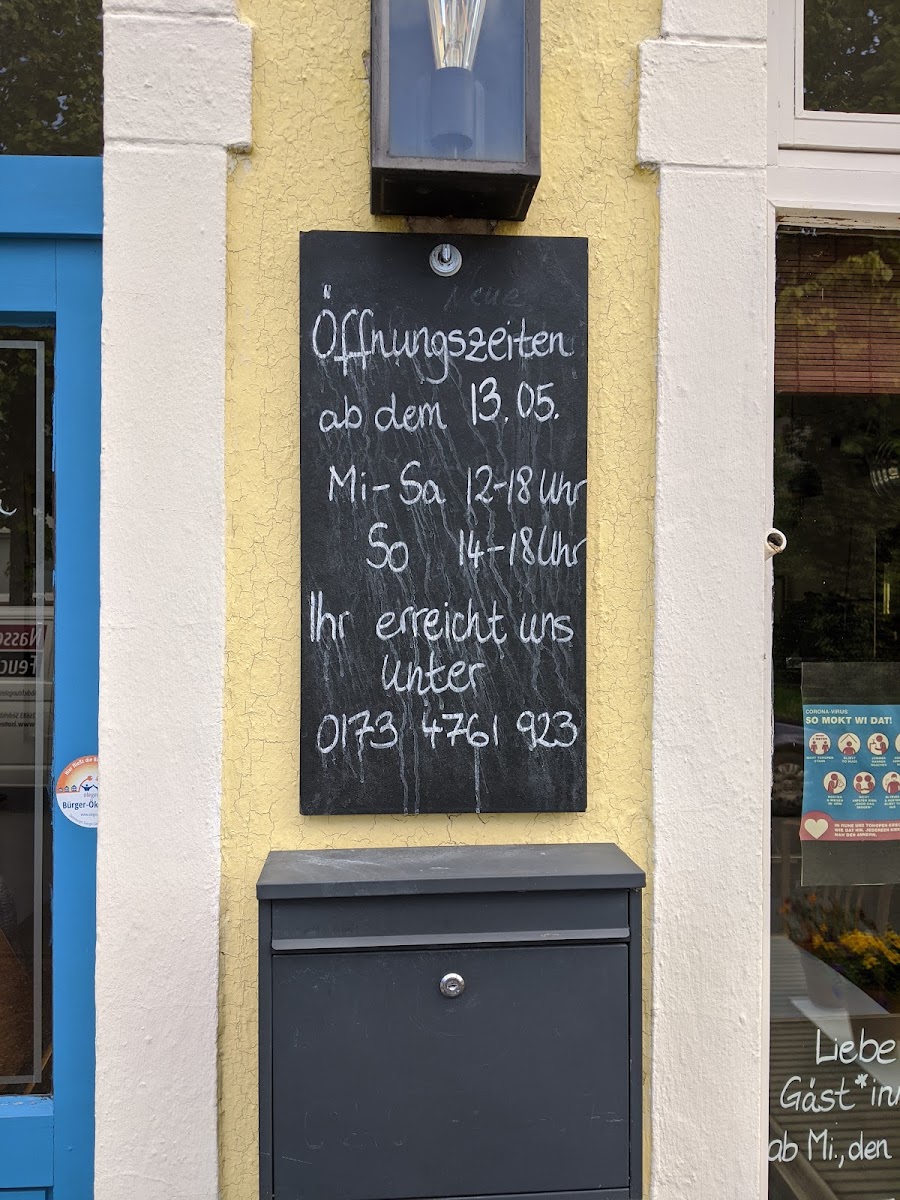 Neue
Öffnungszeiten
ab dem 13.05.
Mi-Sa 12-18 Uhr
So 14-18 Uhr
Ihr erreicht uns
unter
0173 4761 923
Bürger-Ök
CORONA-VIRUS
SO MOKT WI DAT!
Liebe
Gäst*inn
ab Mi., den